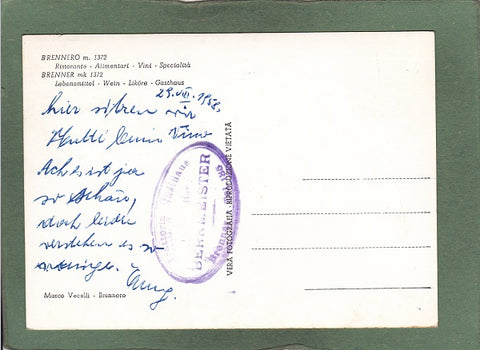 BRENNERO m. 1372
Ristorante - Alimentari - Vini - Specialità
BRENNER mk 1372
Lebensmittel - Wein - Liköre - Gasthaus
29.VII.1958.
hier sitzen wir
Vino
Ach es ist ja
so schön,
doch leider
verstehen es so
wenige.
BERNMEISTER
Brennero
VERA FOTOGRAFIA - RIPRODUZIONE VIETATA
Marco Vecelli - Brennero